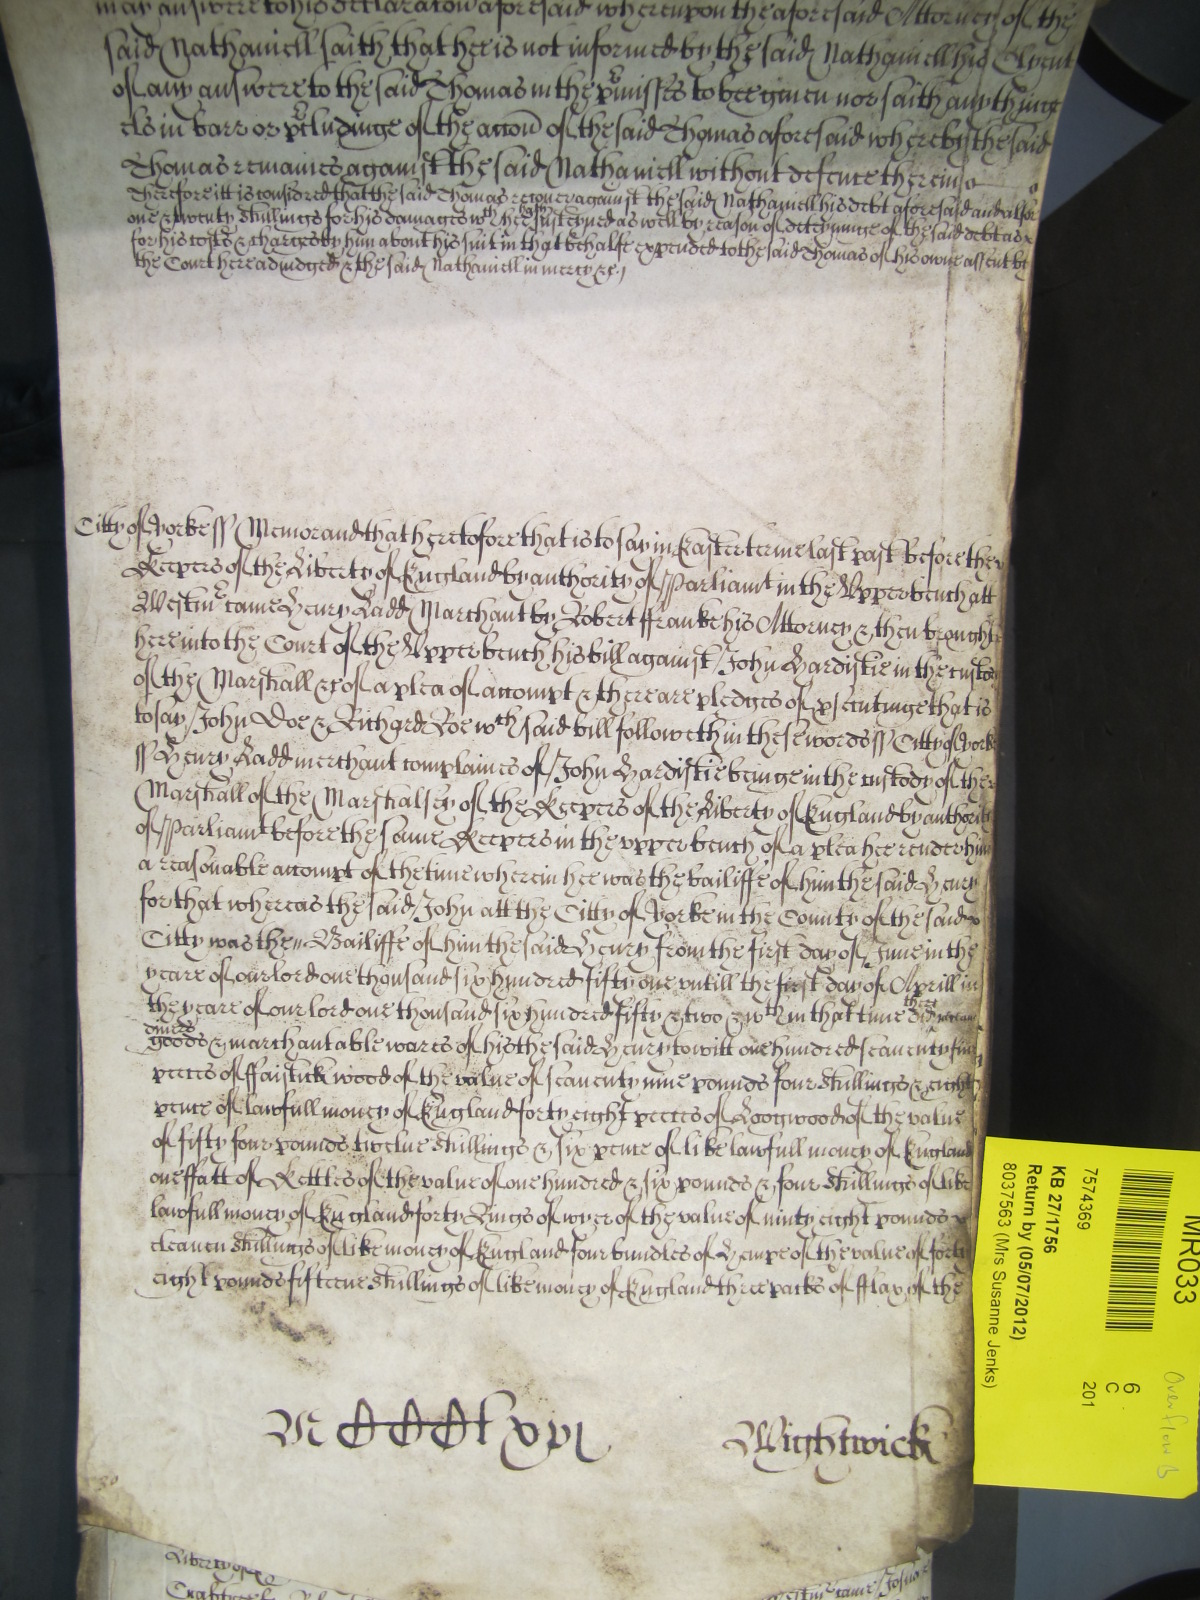 may answere to his declaracon aforesaid whereupon the aforesaid Attorney of the
said Nathaniell saith that hee is not informed by the said Nathaniell his Clyent
of any answere to the said Thomas in the pmisses to bee given nor saith any thinge
els in barr or pcludinge of the accon of the said Thomas aforesaid whereby the said
Thomas remaines against the said Nathaniell without defence therein
Therefore itt is considred that the said Thomas recover against the said Nathaniell his debt aforesaid and alsoe
one & twenty shillings for his damages wch hee hath susteyned as well by reason of deteyninge of the said debt as
for his costs & charges by him about his suit in that behalfe expended to the said Thomas of his owne assent by
the Court here adiudged & the said Nathaniell in mercy &c
Citty of Yorke ss Memorand that heretofore that is to say in Easter terme last past before the
Keepers of the Liberty of England by authority of Parliamt in the Upper bench att
Westmr came Henry Ladd Marchant by Robert ffranke his Attorney & then brought
here into the Court of the Upper bench his bill against John Hardistie in the custo
of the Marshall &c of a plea of accompt & there are pledges of psecutinge that is
to say John Doe & Richard Roe wch said bill followeth in these words ss Citty of Yorke
ss Henry Ladd merchant complaines of John Hardistie beinge in the custody of the
Marshall of the Marshalsey of the Keepers of the Liberty of England by authority
of Parliamt before the same Keepers in the upper bench of a plea hee render him
a reasonable accompt of the time wherein hee was the bailiffe of him the said Henry
for that whereas the said John att the Citty of Yorke in the County of the said
Citty was the Bailiffe of him the said Henry from the first day of June in the
yeare of our lord one thousand six hundred fifty one untill the first day of Aprill in
the yeare of our lord one thousand six hundred fifty & two & wthin that time there did
divers
goods & marchantable wares of his the said Henry to witt one hundred seaventy five
peeces of ffaistick wood of the value of seaventy nine pounds four shillings & eight
pence of lawfull money of England forty eight peeces of Logwood of the value
of fifty four pounds twelve shillings & six pence of like lawfull money of England
one ffatt of Kettles of the value of one hundred & six pounds & four shillings of like
lawfull money of England forty Rings of wyer of the value of ninty eight pounds
eleaven shillings of like money of England four bundles of Hempe of the value of forty
eight pounds fifteene shillings of like money of England three packs of fflax of the
Wightwick
MR033
7574369
6
C
201
KB 27/1756
Return by (05/07/2012)
8037563 (Mrs Susanne Jenks)
Overflow B